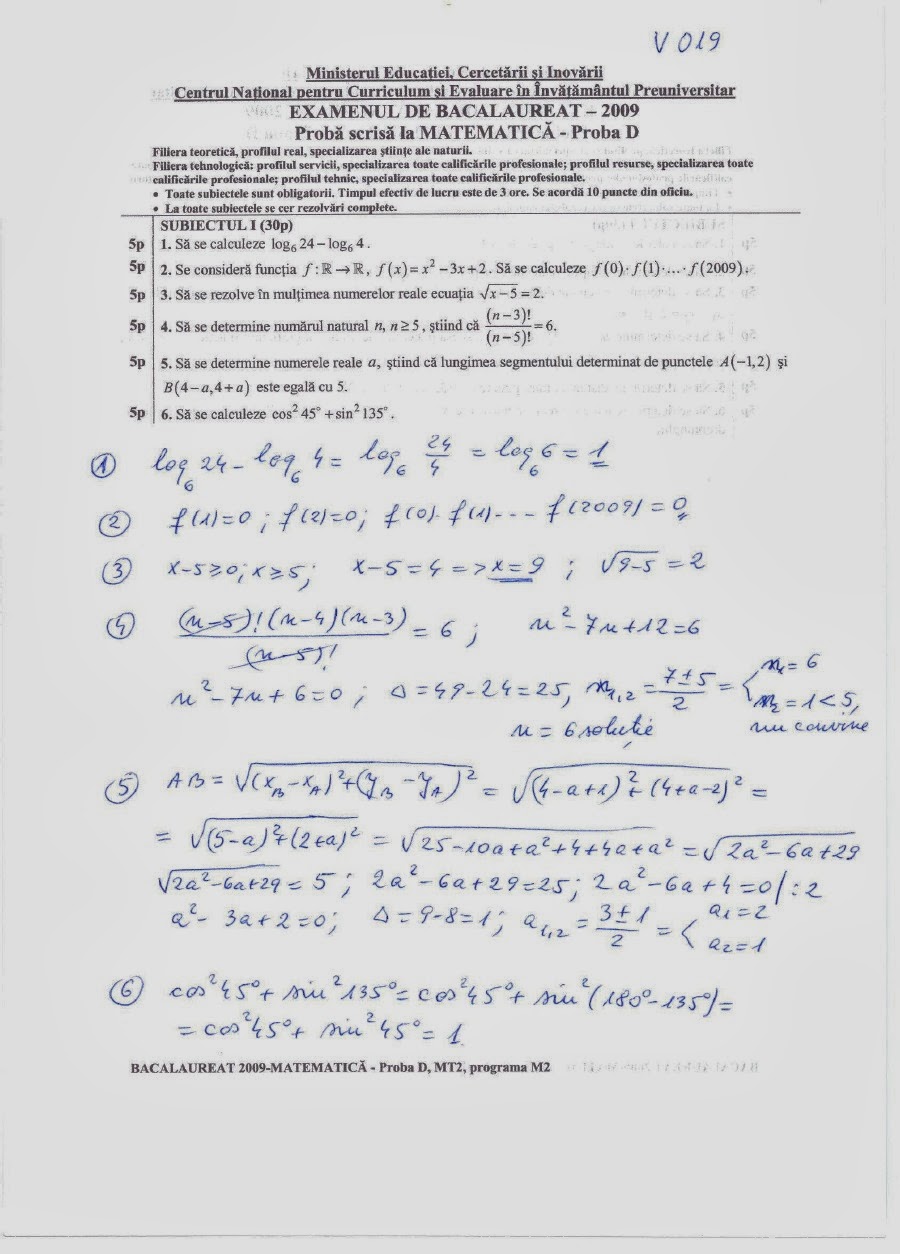 V 019
Ministerul Educaţiei, Cercetării şi Inovării
Centrul Naţional pentru Curriculum şi Evaluare în Învăţământul Preuniversitar
EXAMENUL DE BACALAUREAT – 2009
Probă scrisă la MATEMATICĂ - Proba D
Filiera teoretică, profilul real, specializarea ştiinţe ale naturii.
Filiera tehnologică: profilul servicii, specializarea toate calificările profesionale; profilul resurse, specializarea toate
calificările profesionale; profilul tehnic, specializarea toate calificările profesionale.
• Toate subiectele sunt obligatorii. Timpul efectiv de lucru este de 3 ore. Se acordă 10 puncte din oficiu.
• La toate subiectele se cer rezolvări complete.
SUBIECTUL I (30p)
5p 1. Să se calculeze log₆ 24 – log₆ 4 .
5p 2. Se consideră funcţia f : ℝ → ℝ, f(x) = x² – 3x + 2 . Să se calculeze f(0)·f(1)·...·f(2009).
5p 3. Să se rezolve în mulţimea numerelor reale ecuaţia √(x–5) = 2.
5p 4. Să se determine numărul natural n, n ≥ 5 , ştiind că (n–3)!/(n–5)! = 6.
5p 5. Să se determine numerele reale a, ştiind că lungimea segmentului determinat de punctele A(–1,2) şi
B(4–a,4+a) este egală cu 5.
5p 6. Să se calculeze cos² 45° + sin² 135° .
① log₆ 24 – log₆ 4 = log₆ 24/4 = log₆ 6 = 1
② f(1)=0 ; f(2)=0; f(0)· f(1)· - - - f(2009) = 0
③ x–5≥0; x≥5; x–5=4 => x=9 ; √(9–5) = 2
④ (n–5)!(n–4)(n–3)/(n–5)! = 6 ; n²–7n+12=6
n²–7n+6=0 ; Δ=49–24=25, n₁,₂ = (7±5)/2 = < n₁=6
n₂=1<5,
n = 6 soluţie nu convine
⑤ AB = √((x_B–x_A)²+(y_B–y_A)²) = √((4–a+1)²+(4+a–2)²) =
= √((5–a)²+(2+a)²) = √(25–10a+a²+4+4a+a²) = √(2a²–6a+29)
√(2a²–6a+29) = 5 ; 2a²–6a+29=25; 2a²–6a+4=0/:2
a²–3a+2=0; Δ=9–8=1; a₁,₂ = (3±1)/2 = < a₁=2
a₂=1
⑥ cos²45°+ sin²135°= cos²45°+ sin²(180°–135°)=
= cos²45°+ sin²45°= 1
BACALAUREAT 2009-MATEMATICĂ - Proba D, MT2, programa M2